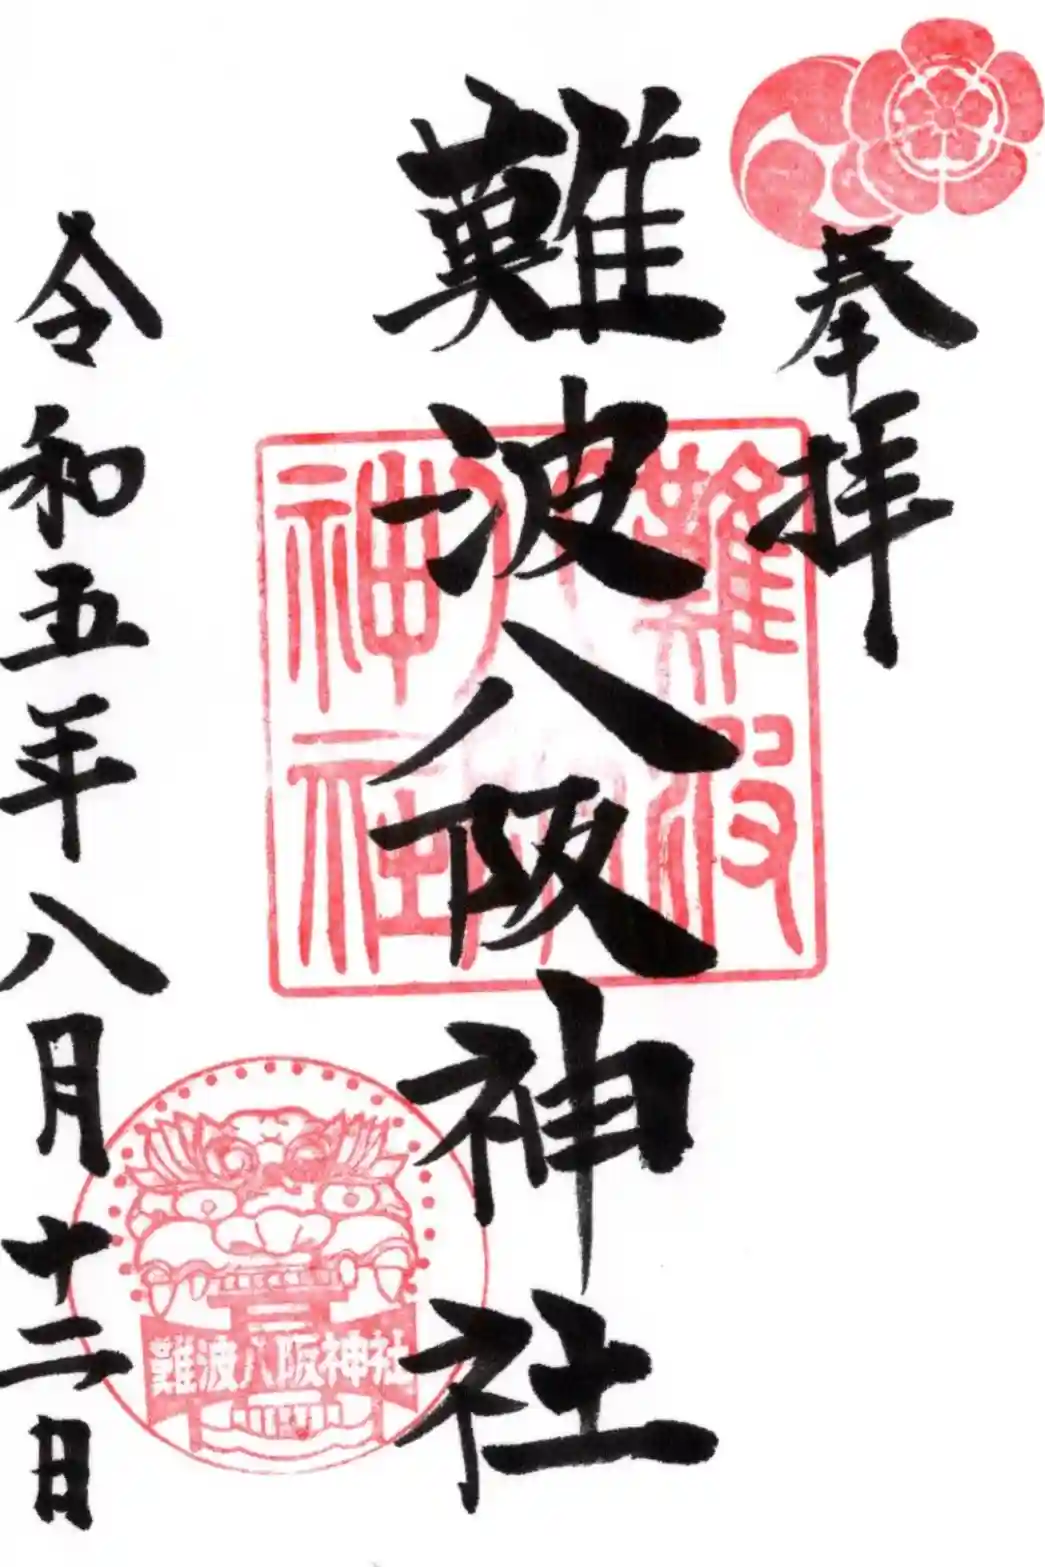 奉拝
難波八阪神社
令和五年八月十二日
難波八阪神社